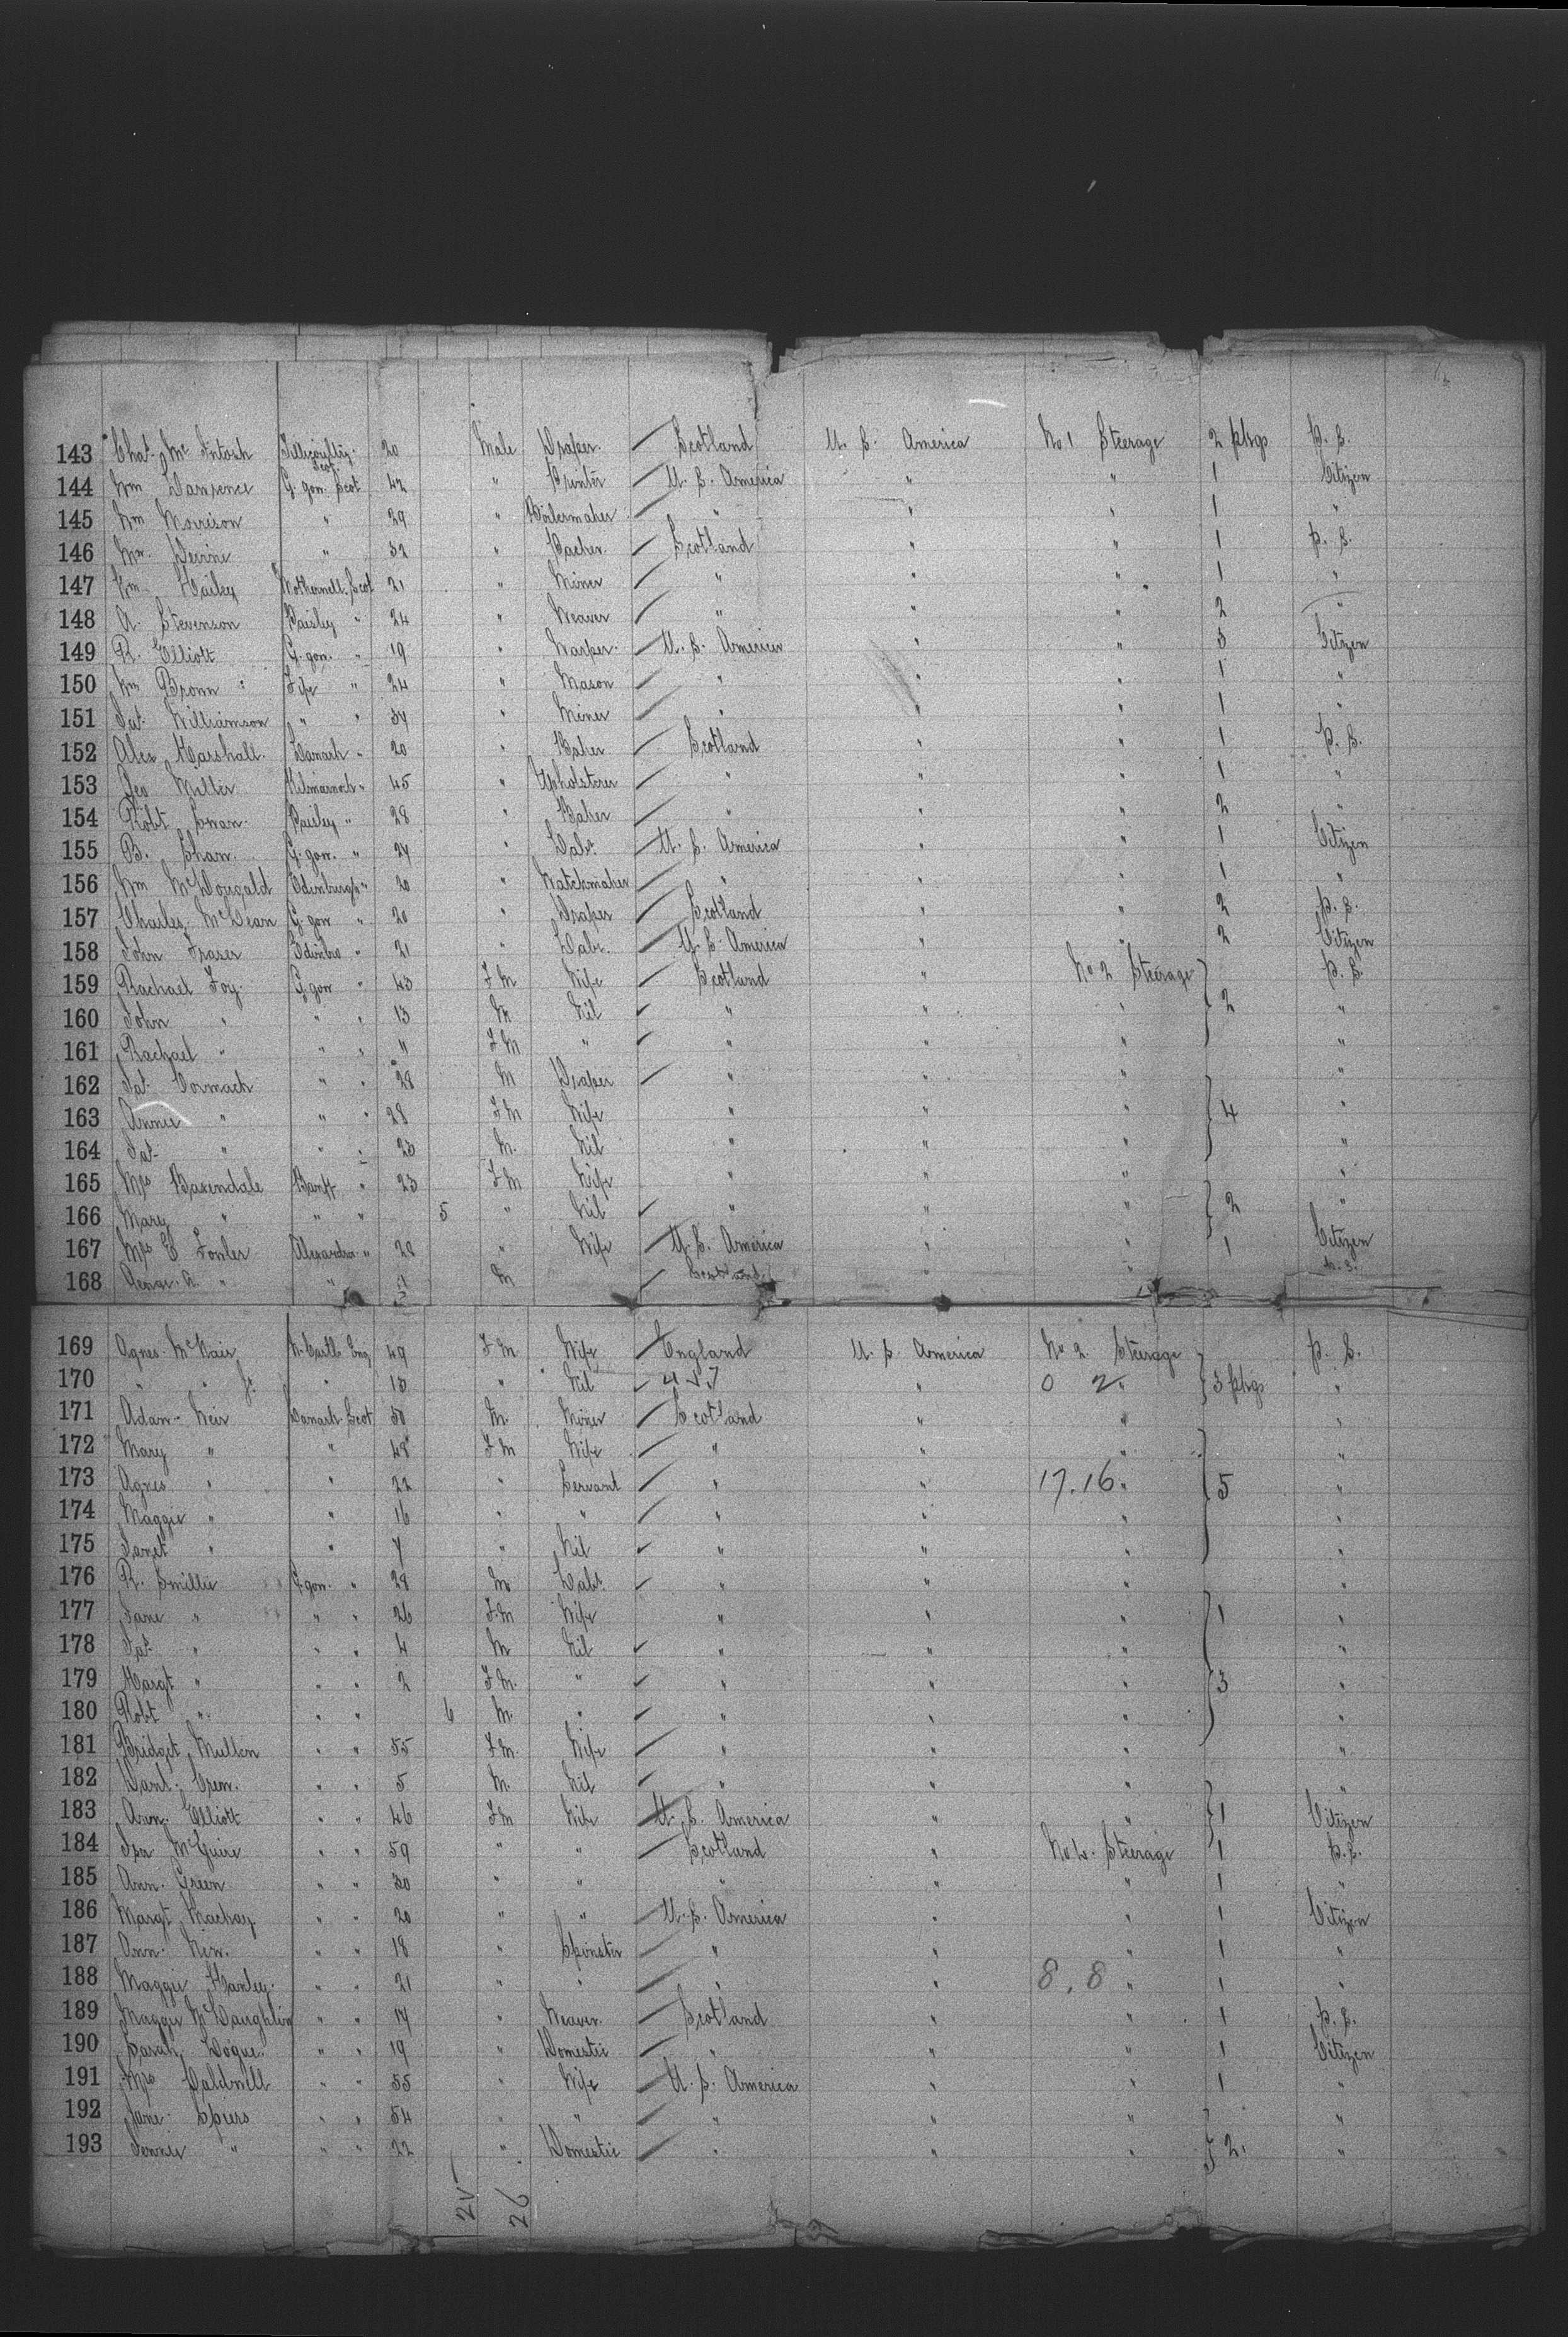 143 Chas. McIntosh Tillicoultry Scot. 20 Male Draper Scotland U. S. America No 1 Steerage 2 pkgs P. S.
144 Wm G. gow. Scot 42 " Printer U. S. America " " 1 Citizen
145 Wm Morrison " 29 " Boilermaker " " " 1 "
146 Wm. Devine " 32 " Scotland " " 1 P. S.
147 Wm Motherwell. Scot 21 " Miner " " " 1 "
148 A. Stevenson Paisley " 24 " Weaver " " " 2 "
149 R. Elliott G. gow. " 19 " Warper. U. S. America " " 3 Citizen
150 Wm Brown Fife " 24 " Mason " " " 1 "
151 Jas. Williamson " " 34 " Miner " " " 1 "
152 Alex Marshall. Lanark " 20 " Baker Scotland " " 1 P. S.
153 Geo Miller Kilmarnock " 45 " Upholsterer " " " 1 "
154 Robt Swan. Paisley " 28 " Baker " " " 2 "
155 B. Shaw. G. gow. " 24 " Labr. U. S. America " " 1 Citizen
156 Wm McDougald Edinburgh " 20 " Watchmaker " " " 1 "
157 Charles McLean G. gow " 20 " Draper Scotland " " 2 P. S.
158 John Fraser Edinbro " 21 " Labr. U. S. America " " 2 Citizen
159 Rachael Foy. G. gow " 43 F M Wife Scotland " No 2 Steerage P. S.
160 John " " " 13 M Nil " " " 2 "
161 Rachael " " " 11 F M " " " " "
162 Jas. Cormack " " 28 M Draper " " " "
163 Annie " " " 28 F M Wife " " " 4 "
164 Jas. " " " M. Nil " " " "
165 Mrs Baxendale Banff " 23 F M Wife " " " "
166 Mary " " " 5 " Nil " " " 2 "
167 Mrs C Fowler Alexandria " 28 " Wife U. S. America " " 1 Citizen
168 " " M Scotland " "
169 Agnes McNair N. Castle Eng 49 F M Wife England U. S. America No 2 Steerage P. S.
170 " " Jr. " 13 " Nil " 0 2 " 3 pkgs "
171 Adam Weir Lanark Scot 50 M. Miner Scotland " " "
172 Mary " " 48 F M Wife " " " "
173 Agnes " " 22 " Servant " " 17.16 " 5 "
174 Maggie " " 16 " " " " " "
175 Janet " " 7 " Nil " " " "
176 R. Smillie G. gow. " 28 M Labr. " " " "
177 Jane " " " 26 F. M Wife " " " 1 "
178 Jas. " " " 4 M Nil " " " "
179 Margt " " " 2 F M. " " " " 3 "
180 Robt " " " 6 M. " " " " "
181 Bridget Mullen " " 55 F M. Wife " " " "
182 Danl. " " 5 M. Nil " " " "
183 Ann. Elliott " " 46 F M Wife U. S. America " " 1 Citizen
184 McGuire " " 59 " " Scotland " Steerage 1 P. S.
185 Ann. Green " " 30 " " " " " 1 "
186 Margt Mackay " " 20 " " U. S. America " " 1 Citizen
187 Ann. " " 18 " Spinster " " " 1 "
188 Maggie Hanley. " " 21 " " " " 8.8 " 1 "
189 Maggie McLaughlin " " 17 " Weaver. Scotland " " 1 P. S.
190 Sarah Logue. " " 19 " Domestic " " " 1 Citizen
191 Mrs Caldwell " " 55 " Wife U. S. America " " 1 "
192 Jane Spiers " " 54 " " " " " "
193 Jennie " " " 22 " Domestic " " " 2. "
26